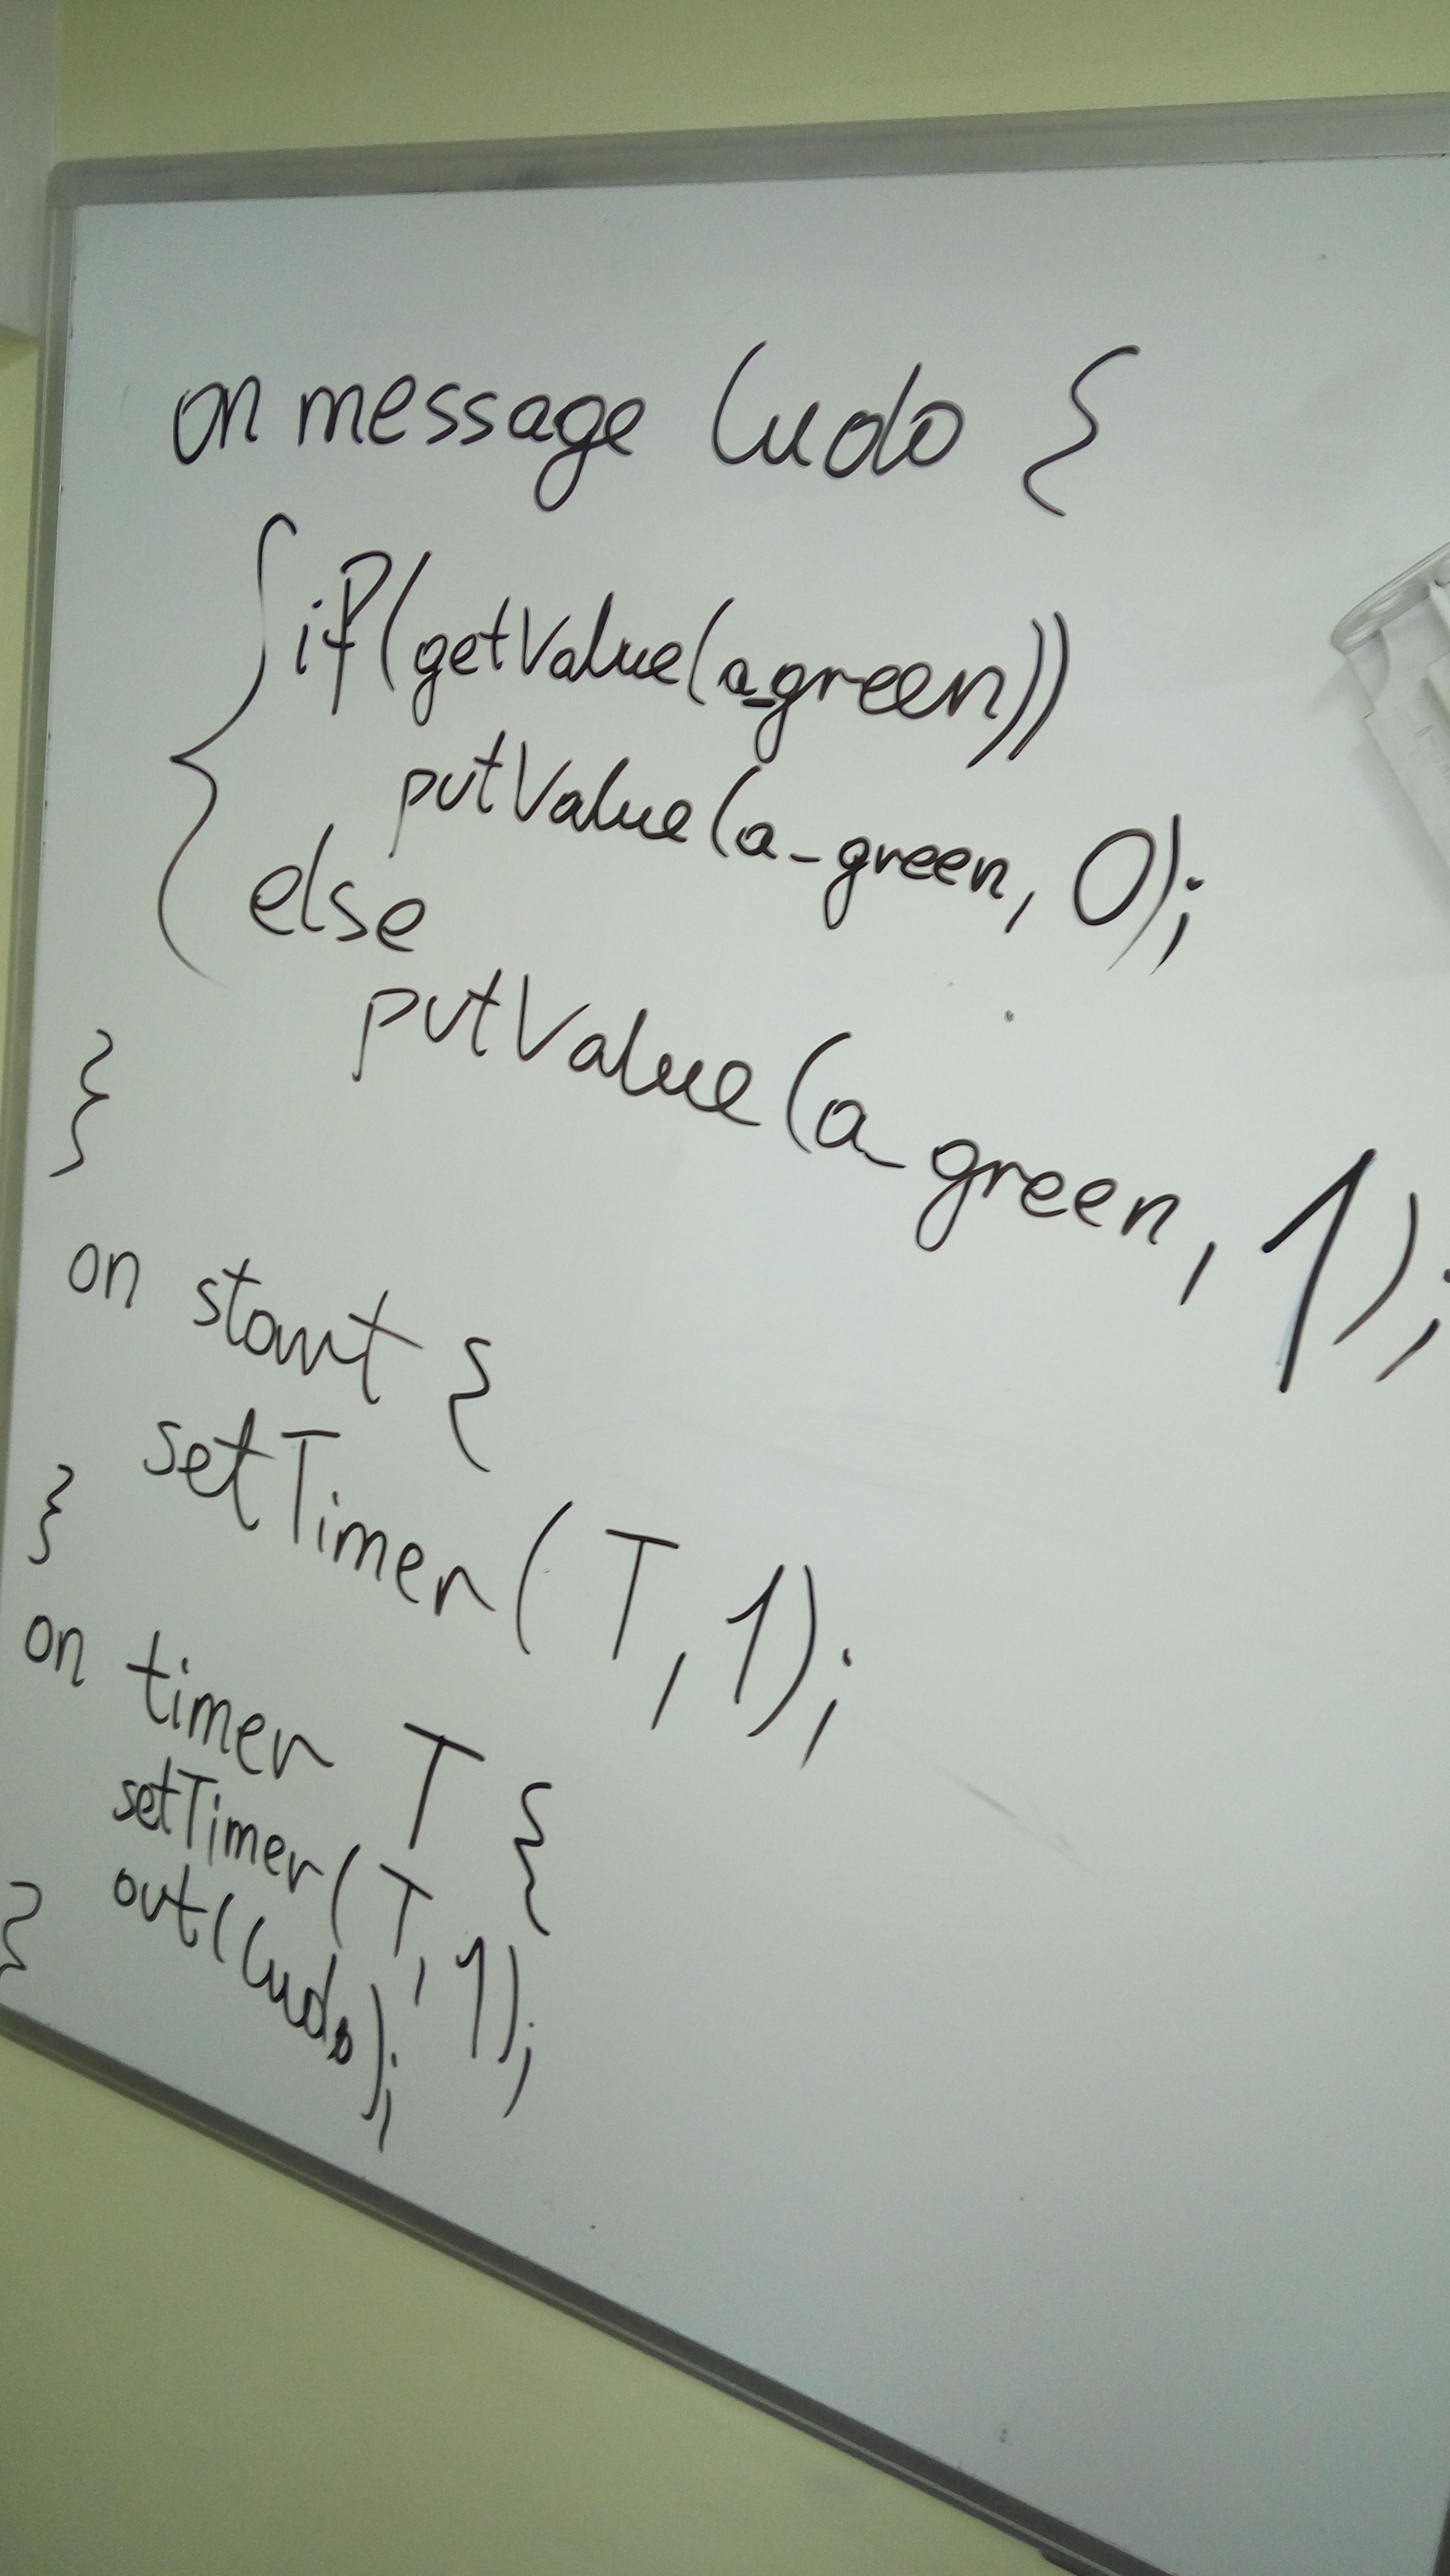 on message Ludo {
if(getValue(a_green))
putValue(a_green, 0);
else
putValue(a_green, 1);
}
on start {
setTimer(T, 1);
}
on timer T {
setTimer(T, 1);
out(Ludo);
}